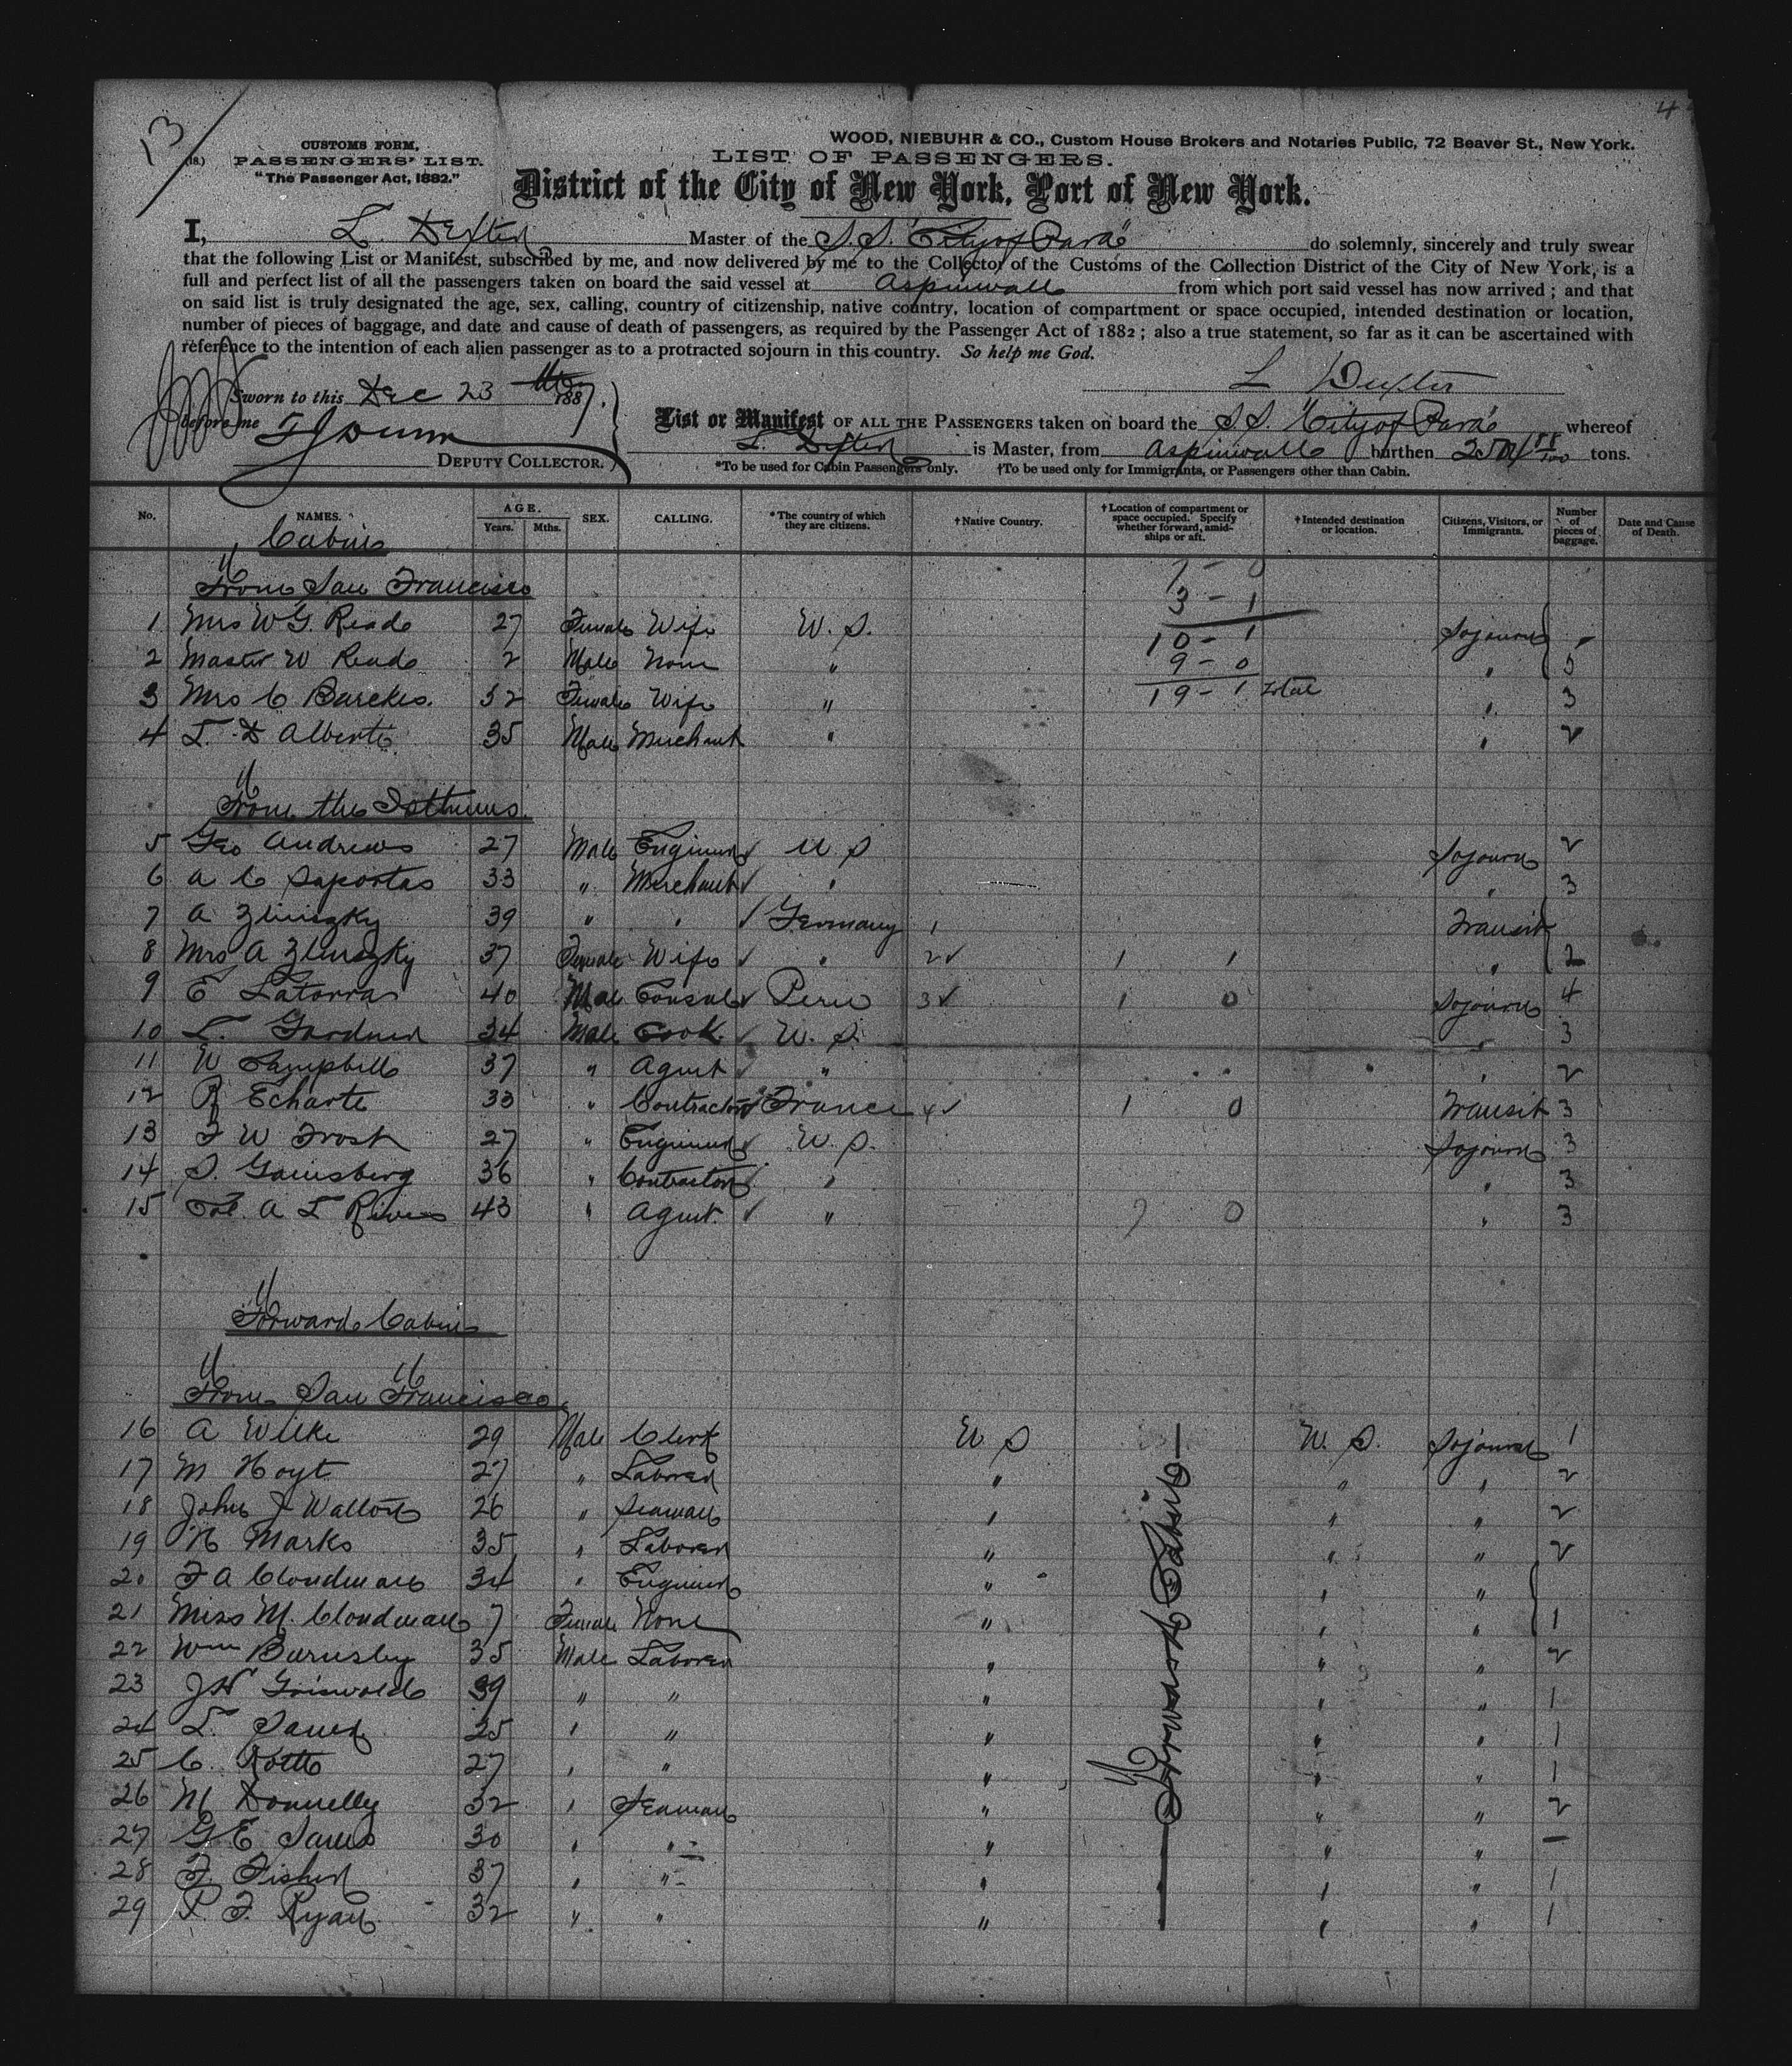 13
4
(18.)
CUSTOMS FORM,
PASSENGERS' LIST.
"The Passenger Act, 1882."
WOOD, NIEBUHR & CO., Custom House Brokers and Notaries Public, 72 Beaver St., New York.
LIST OF PASSENGERS.
District of the City of New York, Port of New York.
I, L. Dexter Master of the S.S. "City of Para" do solemnly, sincerely and truly swear
that the following List or Manifest, subscribed by me, and now delivered by me to the Collector of the Customs of the Collection District of the City of New York, is a
full and perfect list of all the passengers taken on board the said vessel at Aspinwall from which port said vessel has now arrived; and that
on said list is truly designated the age, sex, calling, country of citizenship, native country, location of compartment or space occupied, intended destination or location,
number of pieces of baggage, and date and cause of death of passengers, as required by the Passenger Act of 1882; also a true statement, so far as it can be ascertained with
reference to the intention of each alien passenger as to a protracted sojourn in this country. So help me God.
L Dexter
Sworn to this Dec 23 1887.
before me
DEPUTY COLLECTOR.
List or Manifest OF ALL THE PASSENGERS taken on board the S.S. "City of Para" whereof
L. Dexter is Master, from Aspinwall burthen tons.
*To be used for Cabin Passengers only. †To be used only for Immigrants, or Passengers other than Cabin.
No. NAMES. AGE. Years. Mths. SEX. CALLING. *The country of which they are citizens. †Native Country. †Location of compartment or space occupied. Specify whether forward, amidships or aft. †Intended destination or location. Citizens, Visitors, or Immigrants. Number of pieces of baggage. Date and Cause of Death.
Cabin
From San Francisco
7 - 0
3 - 1
1 Mrs W G. Reade 27 Female Wife U. S. 10 - 1 Sojourn
2 Master W Reade 2 Male None " 9 - 0 " 5
3 Mrs C Barckes. 52 Female Wife " 19 - 1 total " 3
4 L. D Alberte 35 Male Merchant " " 2
From the Isthmus
5 Geo Andrews 27 Male Engineer U S Sojourn 2
6 A C Saportas 33 " Merchant " " 3
7 A 39 " " Germany 1 Transit
8 Mrs A 37 Female Wife " 2 1 1 " 2
9 E Latorra 40 Male Consul Peru 3 1 0 Sojourn 4
10 L. Gardner 34 Male Cook U. S. " 3
11 W Campbell 37 " Agent " " 2
12 R Echarte 33 " Contractor France 4 1 0 Transit 3
13 F W Frost 27 " Engineer U. S. Sojourn 3
14 S. Gainsberg 36 " Contractor " " 3
15 Col. A L Rives 43 " Agent. " 7 0 " 3
Forward Cabin
From San Francisco
16 A Wilke 29 Male Clerk U S U. S. Sojourn 1
17 M Hoyt 27 " Laborer " " " 2
18 John J Walton 26 " Seaman " " " 2
19 N Marks 35 " Laborer " " " 2
20 F A Cloudman 34 " Engineer " " "
21 Miss M. Cloudman 7 Female None " " " 1
22 Wm Burnsby 35 Male Laborer " " " 2
23 J H Griswold 39 " " " " " 1
24 L. 25 " " " " " 1
25 C. 27 " " " " " 1
26 M Donnelly 32 " Seaman " " " 2
27 G E 30 " " " " " —
28 F. Fisher 37 " " " " " 1
29 P. F. Ryan 32 " " " " " 1
Forward Cabin